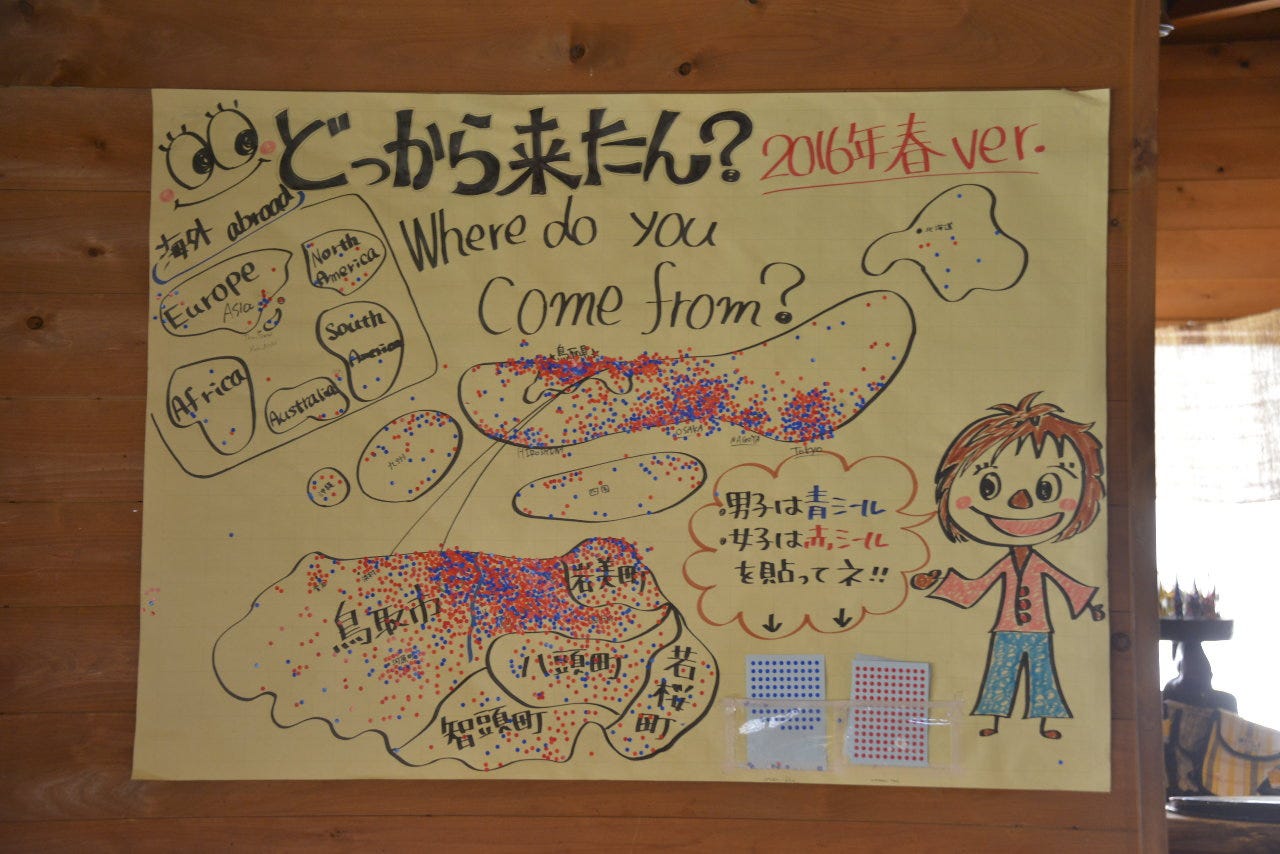 どっから来たん?
2016年春 ver.
海外 abroad
Where do you
Come from?
Europe
Asia
North
America
South
America
Africa
Australia
北海道
鳥取県
HIROSHIMA
OSAKA
NAGOYA
Tokyo
九州
沖縄
四国
・男子は青シール
・女子は赤シール
を貼ってネ!!
↓ ↓
岩美町
鳥取市
八頭町
若桜町
智頭町